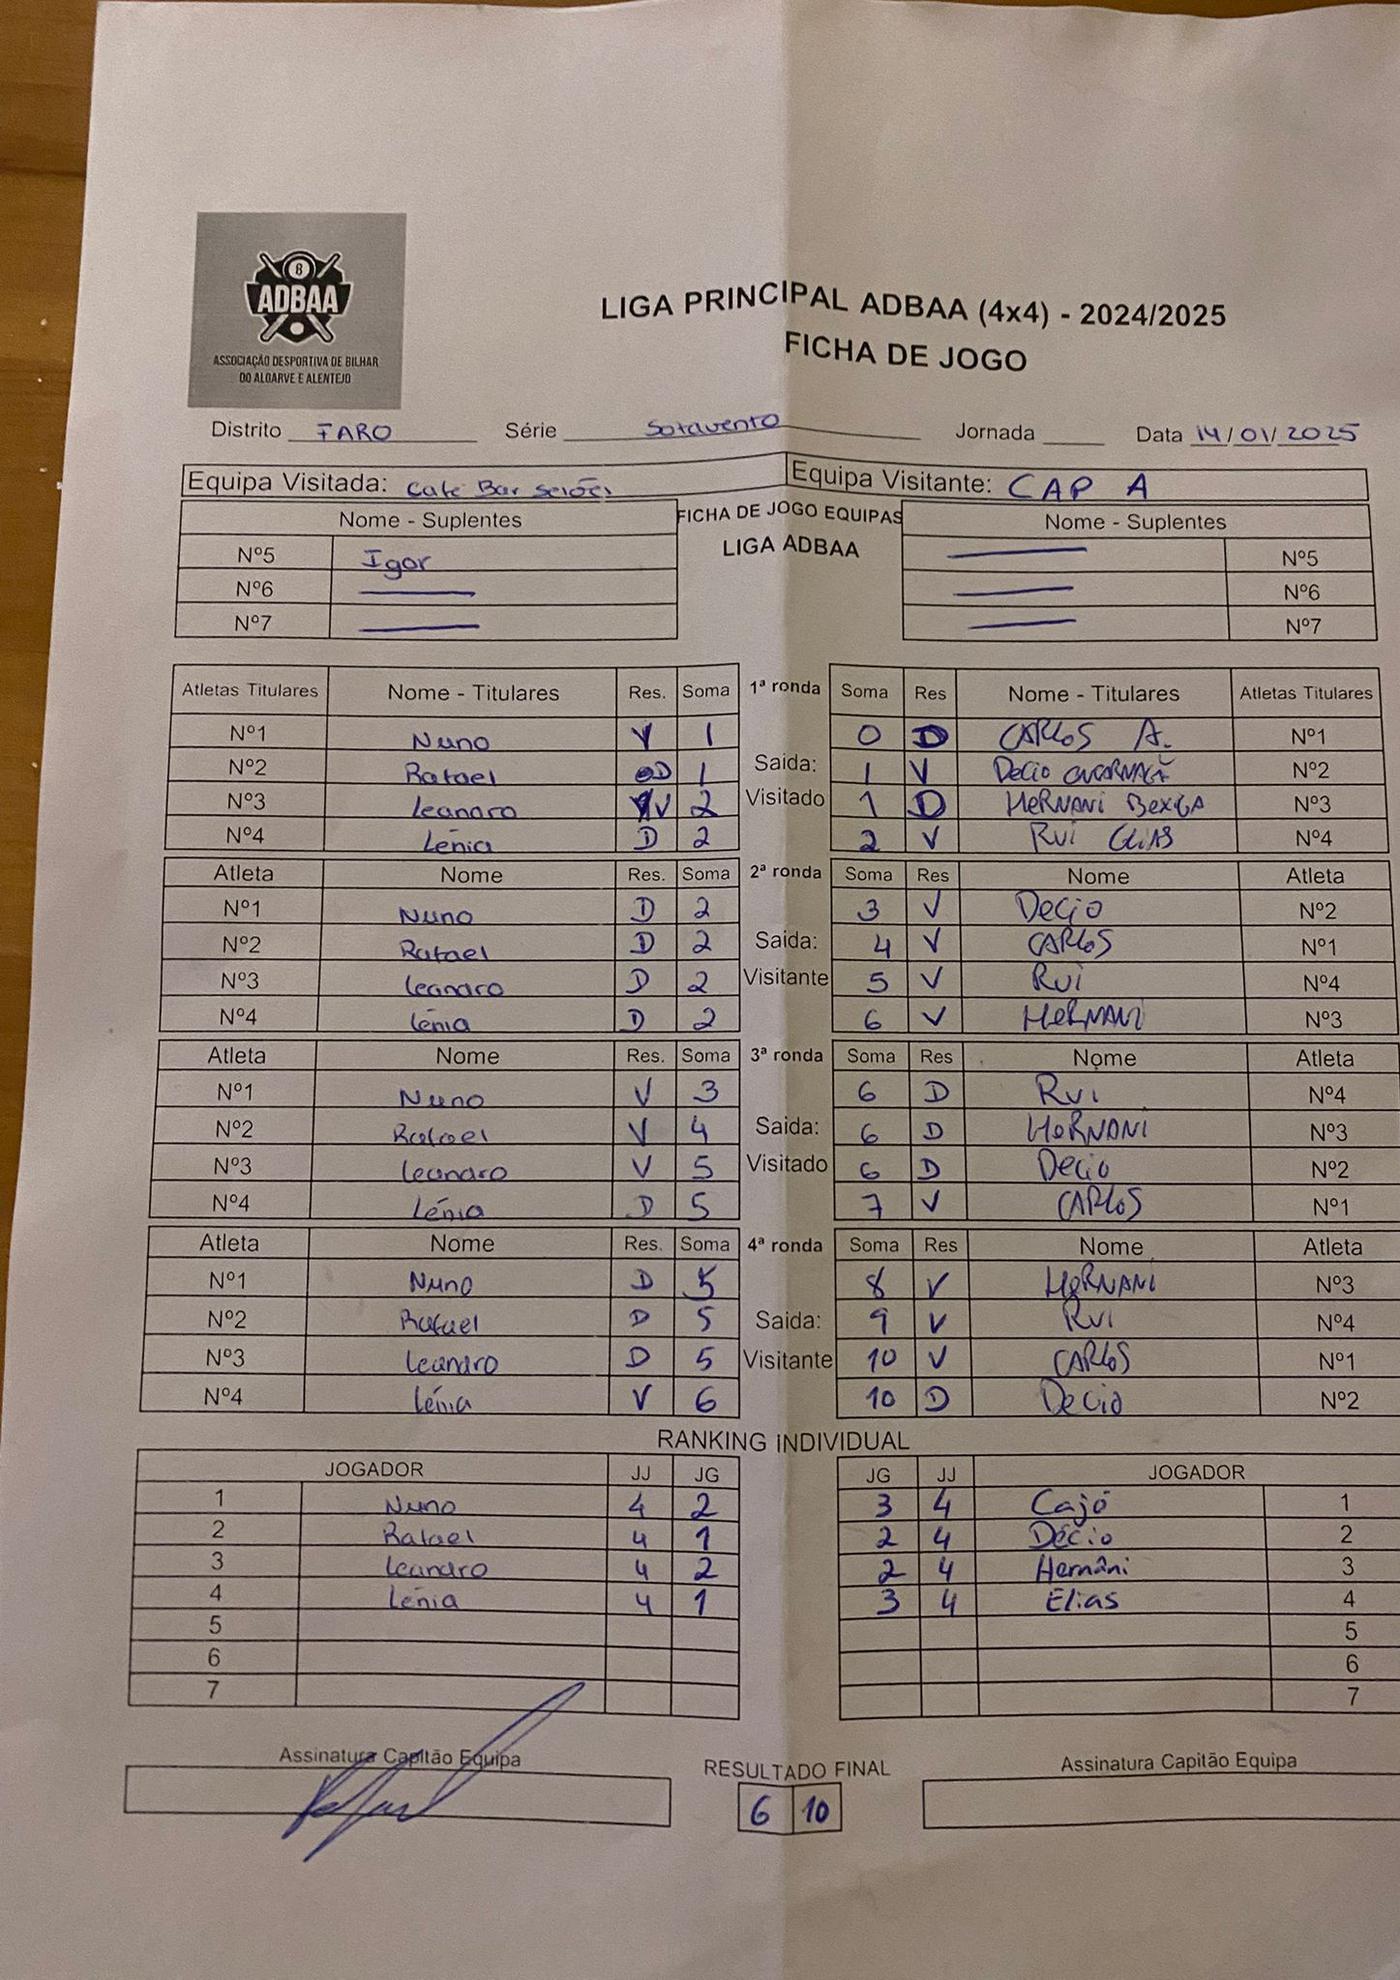 8
ADBAA
ASSOCIAÇÃO DESPORTIVA DE BILHAR
DO ALGARVE E ALENTEJO
LIGA PRINCIPAL ADBAA (4x4) - 2024/2025
FICHA DE JOGO
Distrito FARO Série Sotavento Jornada Data 14/01/2025
Equipa Visitada: Café Bar Equipa Visitante: CAP A
Nome - Suplentes FICHA DE JOGO EQUIPAS Nome - Suplentes
LIGA ADBAA
Nº5 Igor Nº5
Nº6 Nº6
Nº7 Nº7
Atletas Titulares Nome - Titulares Res. Soma 1ª ronda Soma Res Nome - Titulares Atletas Titulares
Nº1 Nuno V 1 0 D CARLOS A. Nº1
Nº2 Rafael D 1 Saida: 1 V Decio Nº2
Nº3 Leandro V 2 Visitado 1 D HERNANI BEXIGA Nº3
Nº4 Lénia D 2 2 V Rui ELIAS Nº4
Atleta Nome Res. Soma 2ª ronda Soma Res Nome Atleta
Nº1 Nuno D 2 3 V Decio Nº2
Nº2 Rafael D 2 Saida: 4 V CARLOS Nº1
Nº3 Leandro D 2 Visitante 5 V Rui Nº4
Nº4 Lénia D 2 6 V HERNANI Nº3
Atleta Nome Res. Soma 3ª ronda Soma Res Nome Atleta
Nº1 Nuno V 3 6 D Rui Nº4
Nº2 Rafael V 4 Saida: 6 D HERNANI Nº3
Nº3 Leandro V 5 Visitado 6 D Decio Nº2
Nº4 Lénia D 5 7 V CARLOS Nº1
Atleta Nome Res. Soma 4ª ronda Soma Res Nome Atleta
Nº1 Nuno D 5 8 V HERNANI Nº3
Nº2 Rafael D 5 Saida: 9 V Rui Nº4
Nº3 Leandro D 5 Visitante 10 V CARLOS Nº1
Nº4 Lénia V 6 10 D Decio Nº2
RANKING INDIVIDUAL
JOGADOR JJ JG JG JJ JOGADOR
1 Nuno 4 2 3 4 Cajó 1
2 Rafael 4 1 2 4 Décio 2
3 Leandro 4 2 2 4 Hernâni 3
4 Lénia 4 1 3 4 Elias 4
5 5
6 6
7 7
Assinatura Capitão Equipa RESULTADO FINAL Assinatura Capitão Equipa
6 10